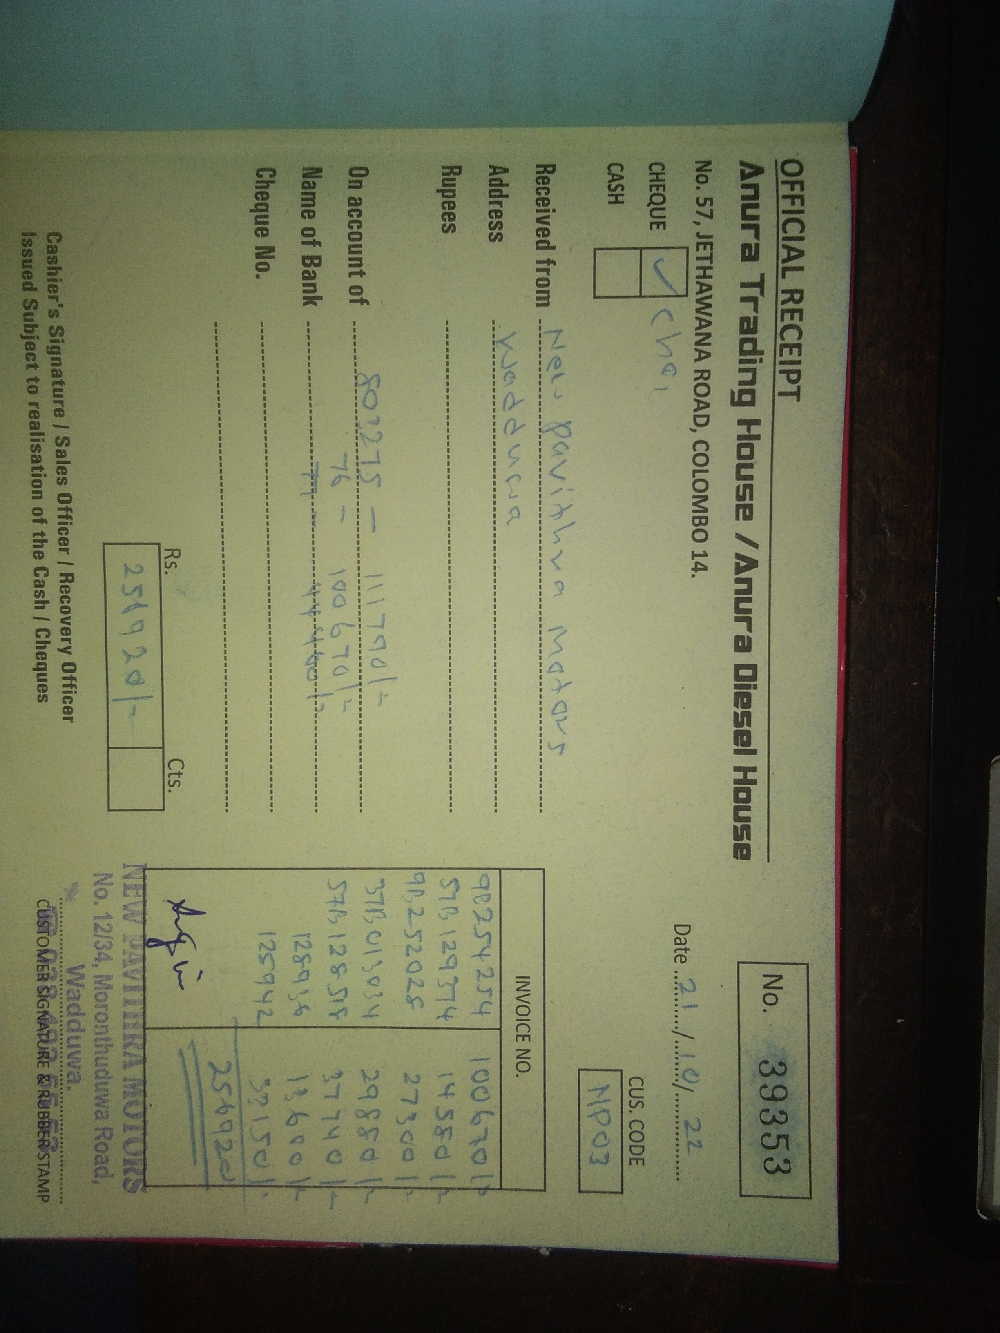 OFFICIAL RECEIPT
Anura Trading House / Anura Diesel House
No. 57, JETHAWANA ROAD, COLOMBO 14.
No. 39353
CHEQUE ✓
CASH
Date 21/10/22
CUS. CODE
NP03
Received from New pavithra motors
Address Wadduwa
Rupees
On account of 803275 - 111790/=
76 - 100670/=
Name of Bank 77 - 44460/=
Cheque No.
Rs. Cts.
256920/-
INVOICE NO.
9B254254 100670/=
57B129374 14580/=
9B252025 27300/=
37B013034 29880/=
57B128518 37740/=
128936 13600/=
125942 33150/=
256920
Cashier's Signature / Sales Officer / Recovery Officer
Issued Subject to realisation of the Cash / Cheques
NEW PAVITHRA MOTORS
No. 12/34, Moronthuduwa Road,
Wadduwa.
CUSTOMER SIGNATURE & RUBBER STAMP